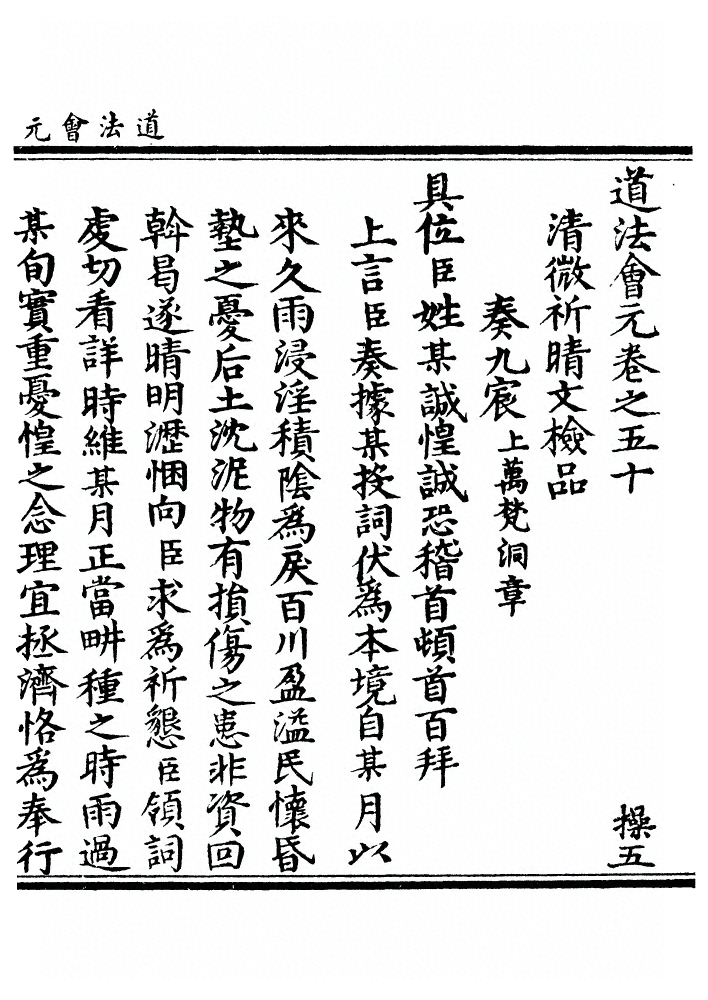 道法會元
道法會元卷之五十
操五
清微祈晴文檢品
奏九宸上萬梵洞章
具位臣姓某誠惶誠恐稽首頓首百拜
上言臣奏據某投詞伏為本境自某月以
來久雨浸淫積陰為戾百川盈溢民懷昏
墊之憂后土沈泥物有損傷之患非資回
斡曷遂晴明瀝悃向臣求為祈懇臣領詞
虔切看詳時維某月正當畊種之時雨過
某旬實重憂惶之念理宜拯濟恪為奉行